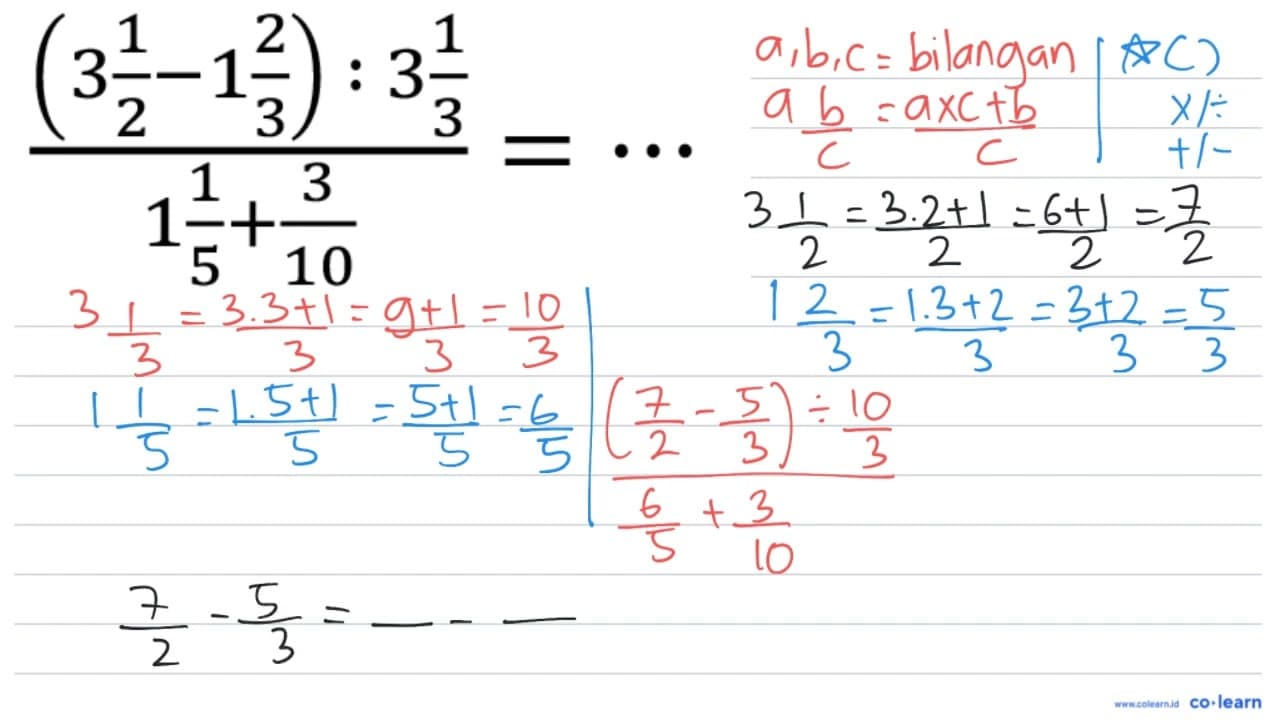 (3 1/2 − 1 2/3) : 3 1/3
—————————— = ...
1 1/5 + 3/10
a, b, c = bilangan | ☆ ( )
a b/c = (a×c+b)/c | × / ÷
+ / −
3 1/2 = (3.2+1)/2 = (6+1)/2 = 7/2
1 2/3 = (1.3+2)/3 = (3+2)/3 = 5/3
3 1/3 = (3.3+1)/3 = (9+1)/3 = 10/3
1 1/5 = (1.5+1)/5 = (5+1)/5 = 6/5
(7/2 − 5/3) ÷ 10/3
——————————
6/5 + 3/10
7/2 − 5/3 = __ − __
www.colearn.id co·learn